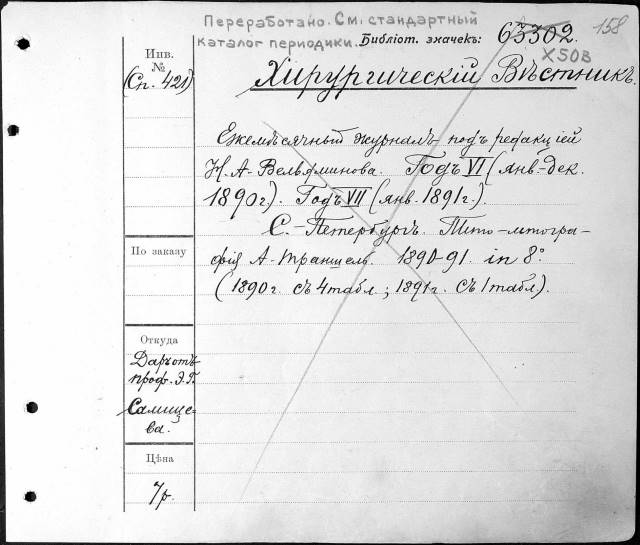 Переработано. См. стандартный
каталог периодики. Библіот. значекъ: 63302. 158
X50B
Инв.
№
(Сп. 421)
Хирургическій Вѣстникъ.
Ежемѣсячный журналъ подъ редакціей
Н. А. Вельяминова. Годъ VI (янв-дек.
1890 г.). Годъ VII (янв. 1891 г.).
С.-Петербургъ. Типо-литогра-
фія А. Траншель. 1890-91. in 8°.
(1890 г. съ 4 табл.; 1891 г. съ 1 табл).
По заказу
Откуда
Даръ отъ
проф.
Салище-
ва.
Цѣна
7 р.